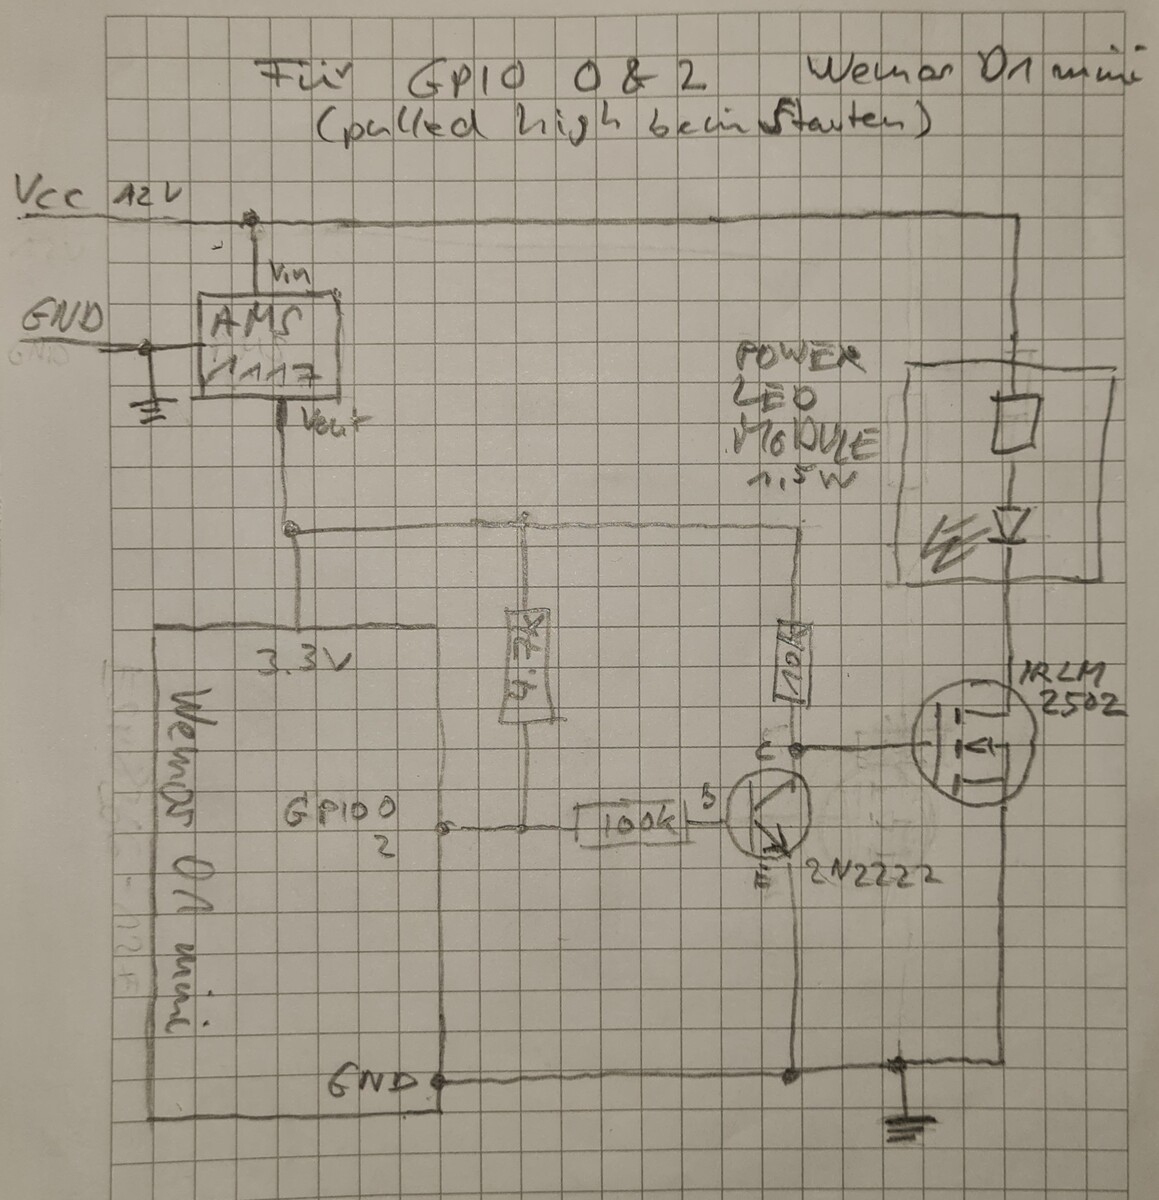 Für GPIO 0 & 2 Wemos D1 mini
(pulled high beim Starten)
Vcc 12V
Vin
GND
AMS
1117
Vout
POWER
LED
MODULE
1,5W
3.3V
10k
IRLM
2502
Wemos D1 mini
C
GPIO 0
2
100k
B
E
2N2222
GND